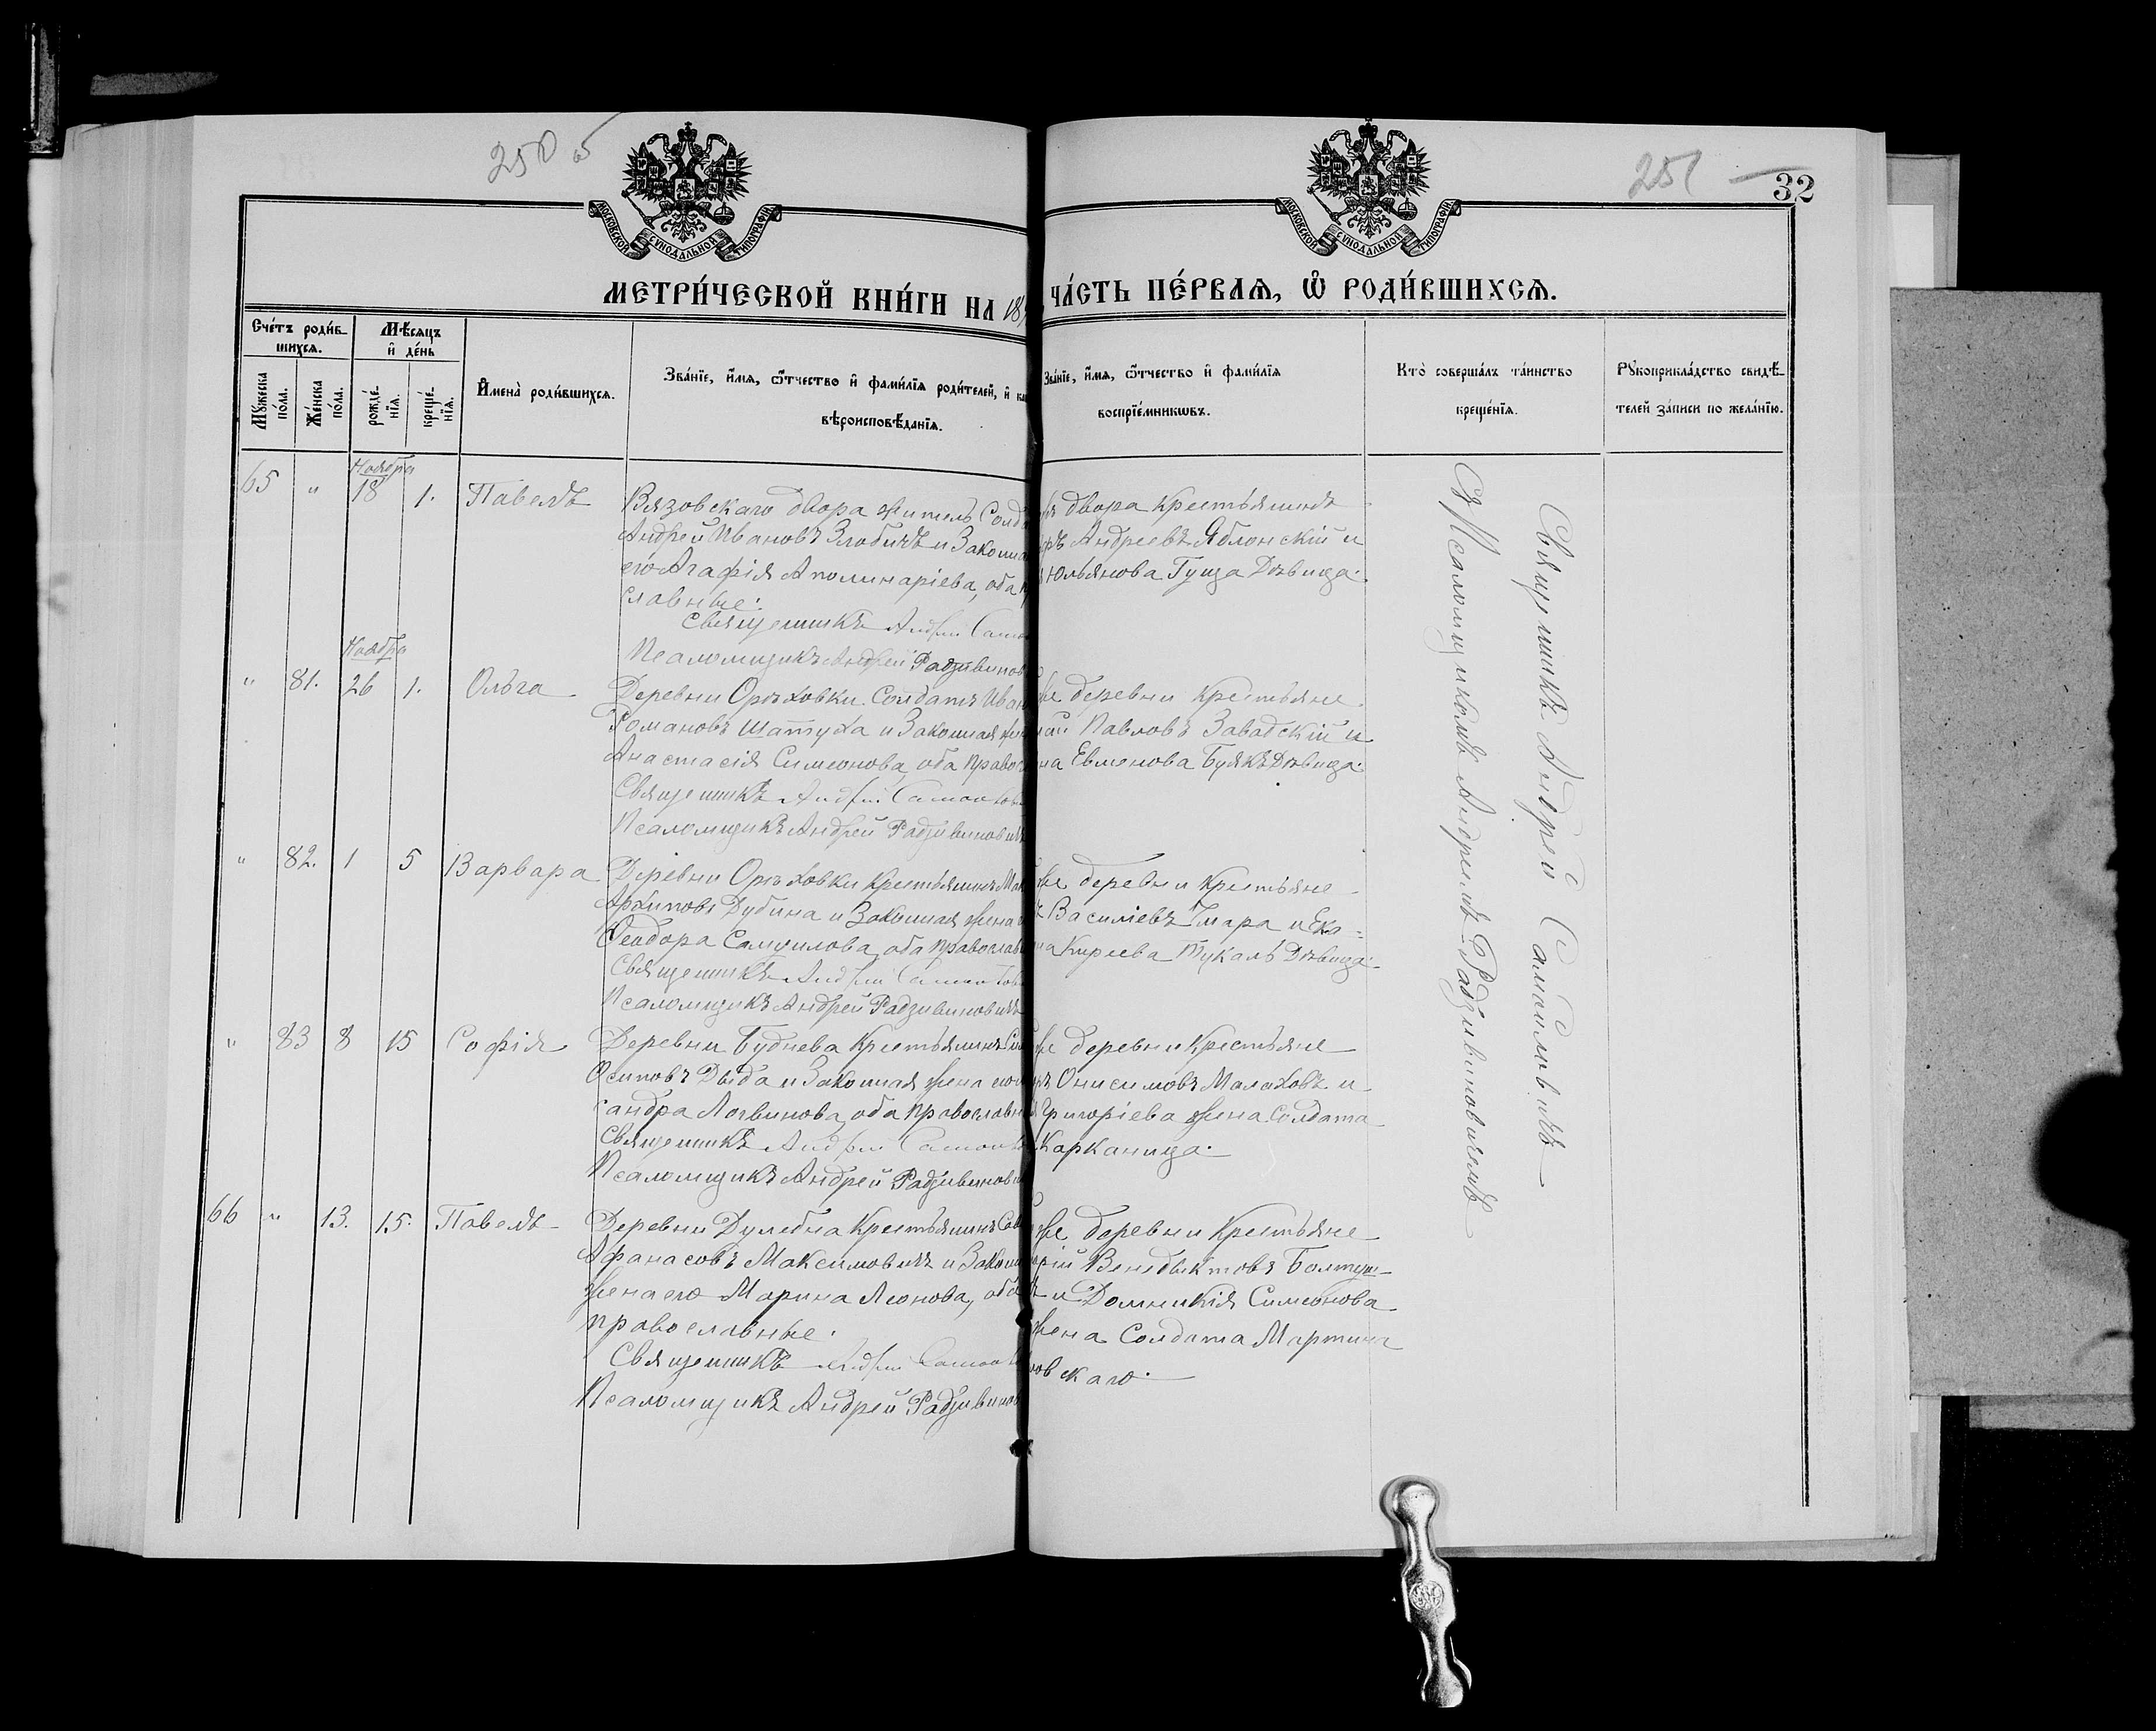 250 об
251
32
МОСКОВСКОЙ СУНОДАЛЬНОЙ ТИПОГРАФІИ
МОСКОВСКОЙ СУНОДАЛЬНОЙ ТИПОГРАФІИ
МЕТРИ́ЧЕСКОЙ КНИ́ГИ НА 18
ЧА́СТЬ ПЕ́РВАѦ, Ѡ҆ РОДИ́ВШИХСѦ.
Сче́тъ роди́в-
шихсѧ.
Мѣ́сяцъ
и҆ де́нь
Мꙋ́жеска
по́ла.
Же́нска
по́ла.
рожде́-
нїѧ.
креще́-
нїѧ.
И҆мена̀ роди́вшихсѧ.
Зва́нїе, и҆́мѧ, ѻ҆́тчество и҆ фами́лїѧ роди́телей, и҆ ка
вѣроисповѣ́данїѧ.
Зва́нїе, и҆́мѧ, ѻ҆́тчество и҆ фами́лїѧ
воспрїе́мникѡвъ.
Кто̀ соверша́лъ та́инство
креще́нїѧ.
Рꙋкоприкла́дство свидѣ́-
телей за́писи по жела́нїю.
65 " Ноября 18 1. Павелъ
Вязовскаго двора житель Солда
Андрей Ивановъ Злобичъ и Законна
его Агафія Аполинаріева, оба п
славные.
Священникъ Андрей Само
Псаломщикъ Андрей Радзивинов
двора Крестьянинъ
Андреевъ Яблонскій и
Юльянова Гуща Дѣвица.
" 81. Ноября 26 1. Ольга
Деревни Орѣховки Солдатъ Иван
Романовъ Шатуха и Законная же
Анастасія Симеонова, оба Правос
Священникъ Андрей Самойлов
Псаломщикъ Андрей Радзивиновичъ
же деревни Крестьяне
Павловъ Завадскій и
на Евменова Буякъ Дѣвица.
" 82. 1 5 Варвара
Деревни Орѣховки Крестьянинъ Мак
Архиповъ Дубина и Законная жена
Ѳеодора Самуилова, оба православ
Священникъ Андрей Самойлов
Псаломщикъ Андрей Радзивиновичъ
же деревни Крестьяне
Василіевъ Гмара и Ека-
на Киреева Тукаль Дѣвица.
" 83 8 15 Софія
Деревни Буднева Крестьянинъ
Осиповъ Дыда и Законная жена его
сандра Логвинова, оба православн
Священникъ Андрей Самойлов
Псаломщикъ Андрей Радзивинови
же деревни Крестьяне
Онисимовъ Малаховъ и
Григоріева жена Солдата
Карканица.
66 " 13. 15. Павелъ
Деревни Дулебна Крестьянинъ Сав
Афанасовъ Максимовичъ и Законн
жена его Марина Леонова, оба
православные.
Священникъ Андрей Самойлов
Псаломщикъ Андрей Радзивинов
же деревни Крестьяне
Венедиктовъ Болтуш-
и Домникія Симеонова
жена Солдата Мартина
овскаго.
Священникъ Андрей Самойловичъ
Съ Псаломщикомъ Андреемъ Радзивиновичемъ